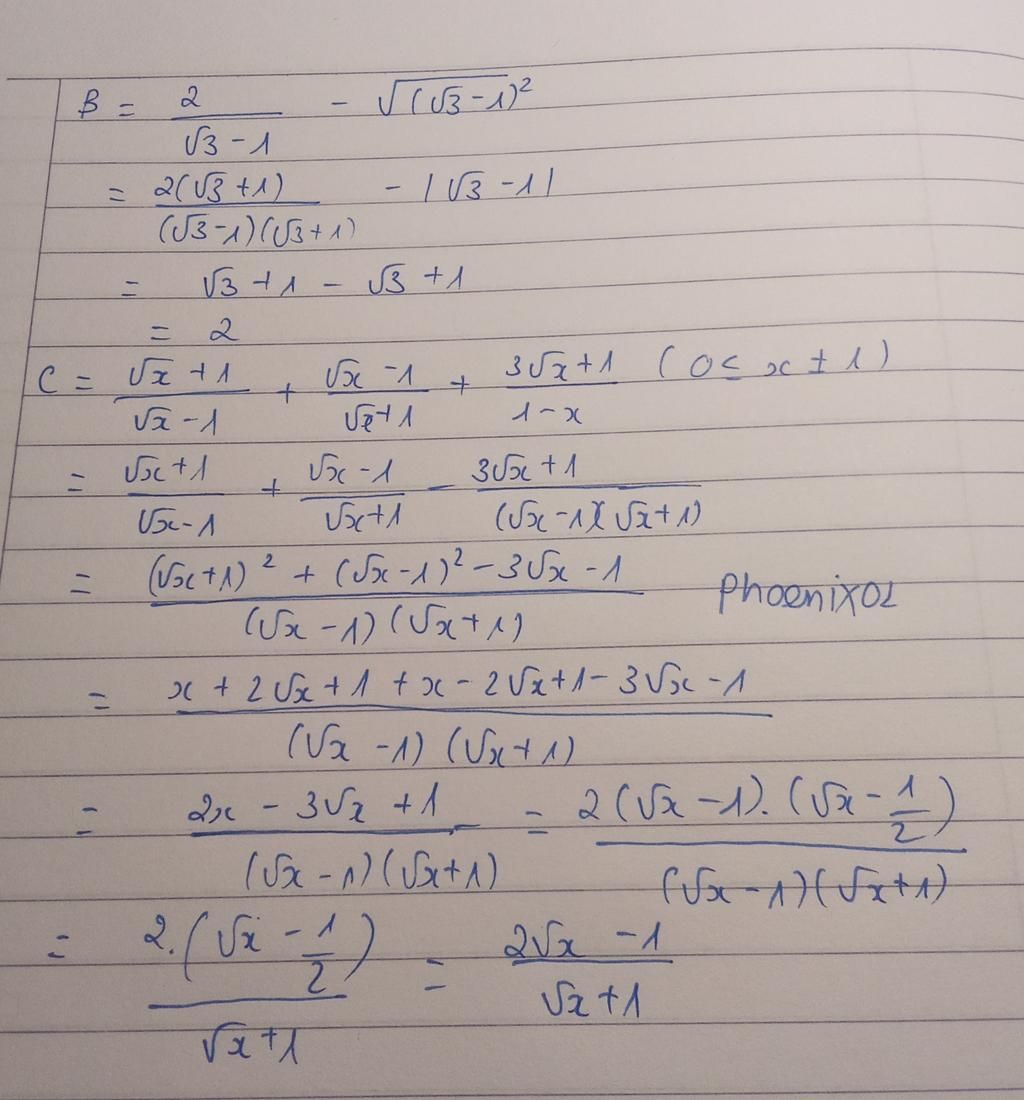 B = \frac{2}{√3 - 1} - √((√3 - 1)²)
= \frac{2(√3 + 1)}{(√3 - 1)(√3 + 1)} - |√3 - 1|
= √3 + 1 - √3 + 1
= 2
C = \frac{√x + 1}{√x - 1} + \frac{√x - 1}{√x + 1} + \frac{3√x + 1}{1 - x} (0 ≤ x ± 1)
= \frac{√x + 1}{√x - 1} + \frac{√x - 1}{√x + 1} - \frac{3√x + 1}{(√x - 1)(√x + 1)}
= \frac{(√x + 1)² + (√x - 1)² - 3√x - 1}{(√x - 1)(√x + 1)} Phoenix02
= \frac{x + 2√x + 1 + x - 2√x + 1 - 3√x - 1}{(√x - 1)(√x + 1)}
= \frac{2x - 3√x + 1}{(√x - 1)(√x + 1)} = \frac{2(√x - 1).(√x - \frac{1}{2})}{(√x - 1)(√x + 1)}
= \frac{2.(√x - \frac{1}{2})}{√x + 1} = \frac{2√x - 1}{√x + 1}